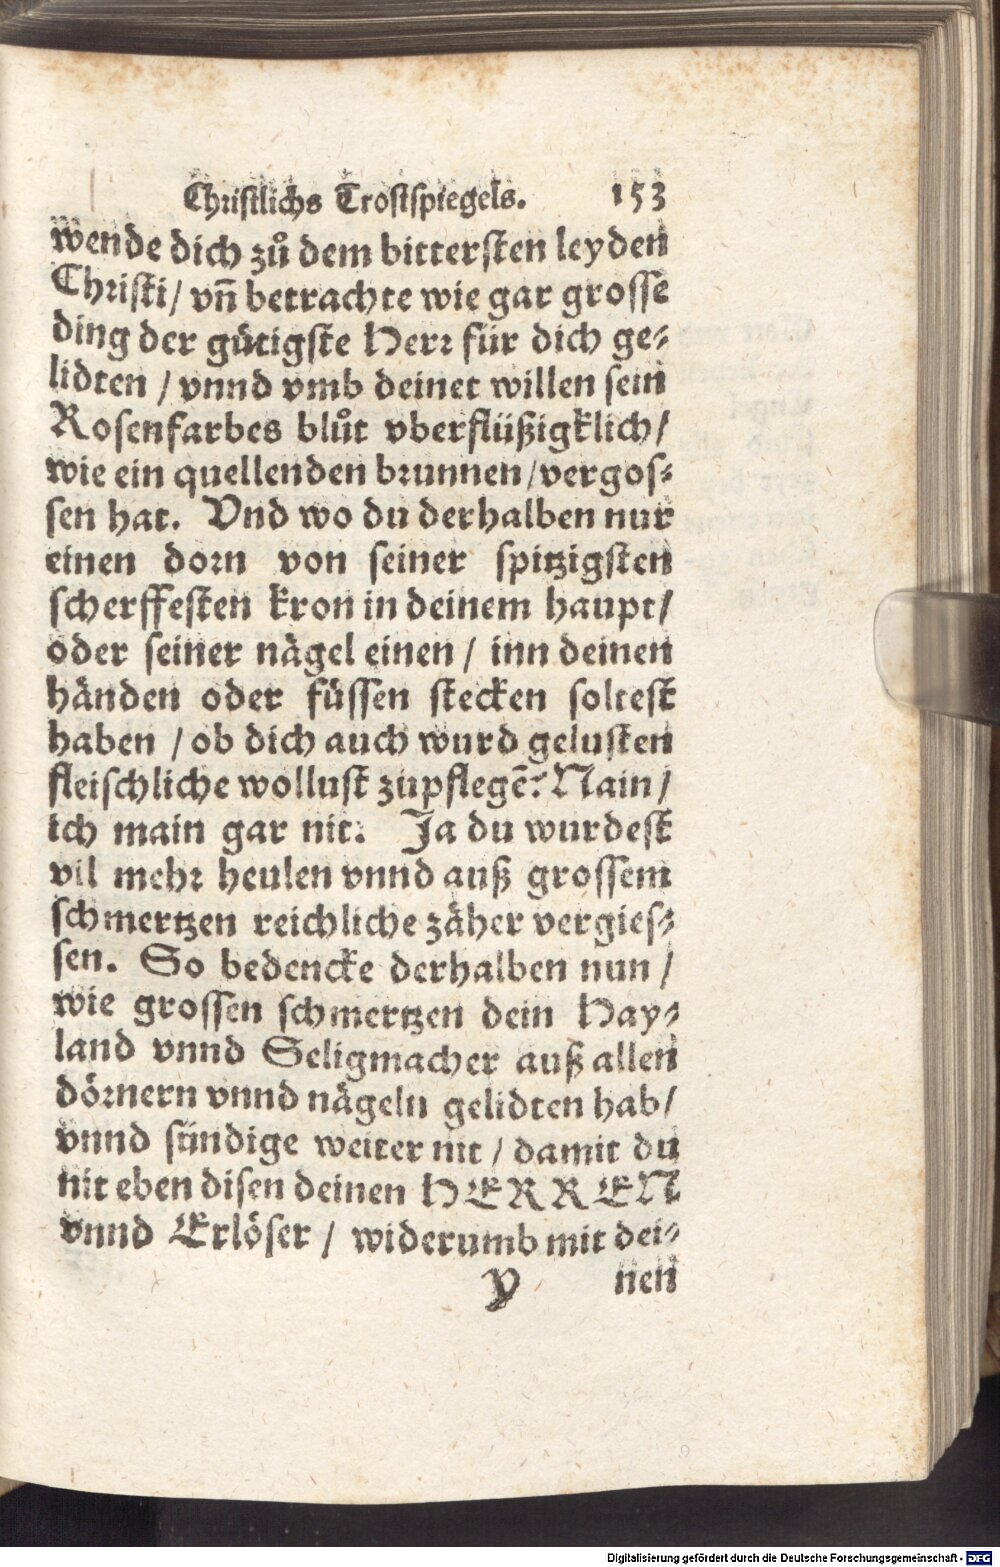 Christlichs Trostspiegels. 153
wende dich zů dem bittersten leyden
Christi/ vñ betrachte wie gar grosse
ding der gütigste Herr für dich ge⸗
lidten / vnnd vmb deinet willen sein
Rosenfarbes blůt vberflüßigklich/
wie ein quellenden brunnen/vergos⸗
sen hat. Vnd wo du derhalben nur
einen dorn von seiner spitzigsten
scherffesten kron in deinem haupt/
oder seiner nägel einen / inn deinen
händen oder füssen stecken soltest
haben / ob dich auch wurd gelusten
fleischliche wollust zupflegẽ? Nain/
ich main gar nit. Ja du wurdest
vil mehr heulen vnnd auß grossem
schmertzen reichliche zäher vergies⸗
sen. So bedencke derhalben nun /
wie grossen schmertzen dein Hay⸗
land vnnd Seligmacher auß allen
dörnern vnnd nägeln gelidten hab/
vnnd sündige weiter nit / damit du
nit eben disen deinen HERREN
vnnd Erlöser / widerumb mit dei⸗
y nen
Digitalisierung gefördert durch die Deutsche Forschungsgemeinschaft - DFG